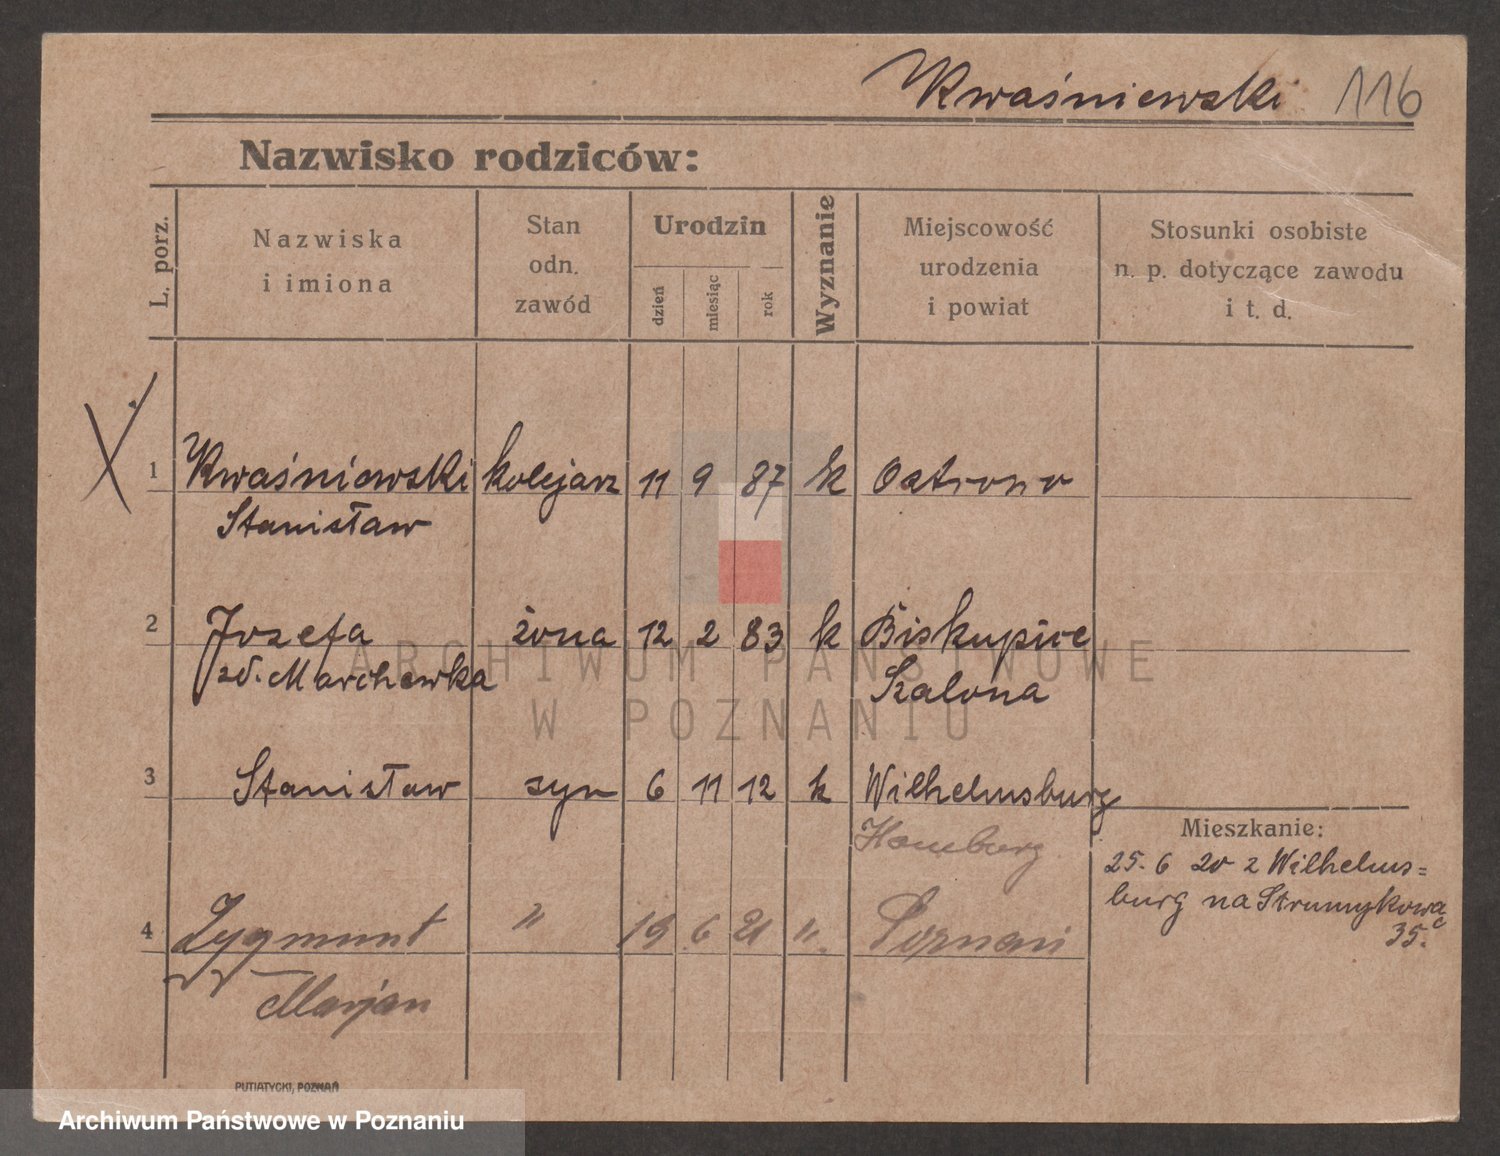 Kwaśniewski 116
Nazwisko rodziców:
L. porz.
Nazwiska
i imiona
Stan
odn.
zawód
Urodzin
dzień
miesiąc
rok
Wyznanie
Miejscowość
urodzenia
i powiat
Stosunki osobiste
n. p. dotyczące zawodu
i t. d.
1 Kwaśniewski kolejarz 11 9 87 k Ostrowo
Stanisław
2 Józefa żona 12 2 83 k Biskupice
zd. Marchewka Szalona
3 Stanisław syn 6 11 12 k Wilhelmsburg
Hamburg
Mieszkanie:
25. 6 20 z Wilhelms=
burg na Strumykowa
35.
4 Zygmunt " 19 6 21 " Poznań
Marjan
PUTIATYCKI, POZNAŃ
ARCHIWUM PAŃSTWOWE
W POZNANIU
Archiwum Państwowe w Poznaniu